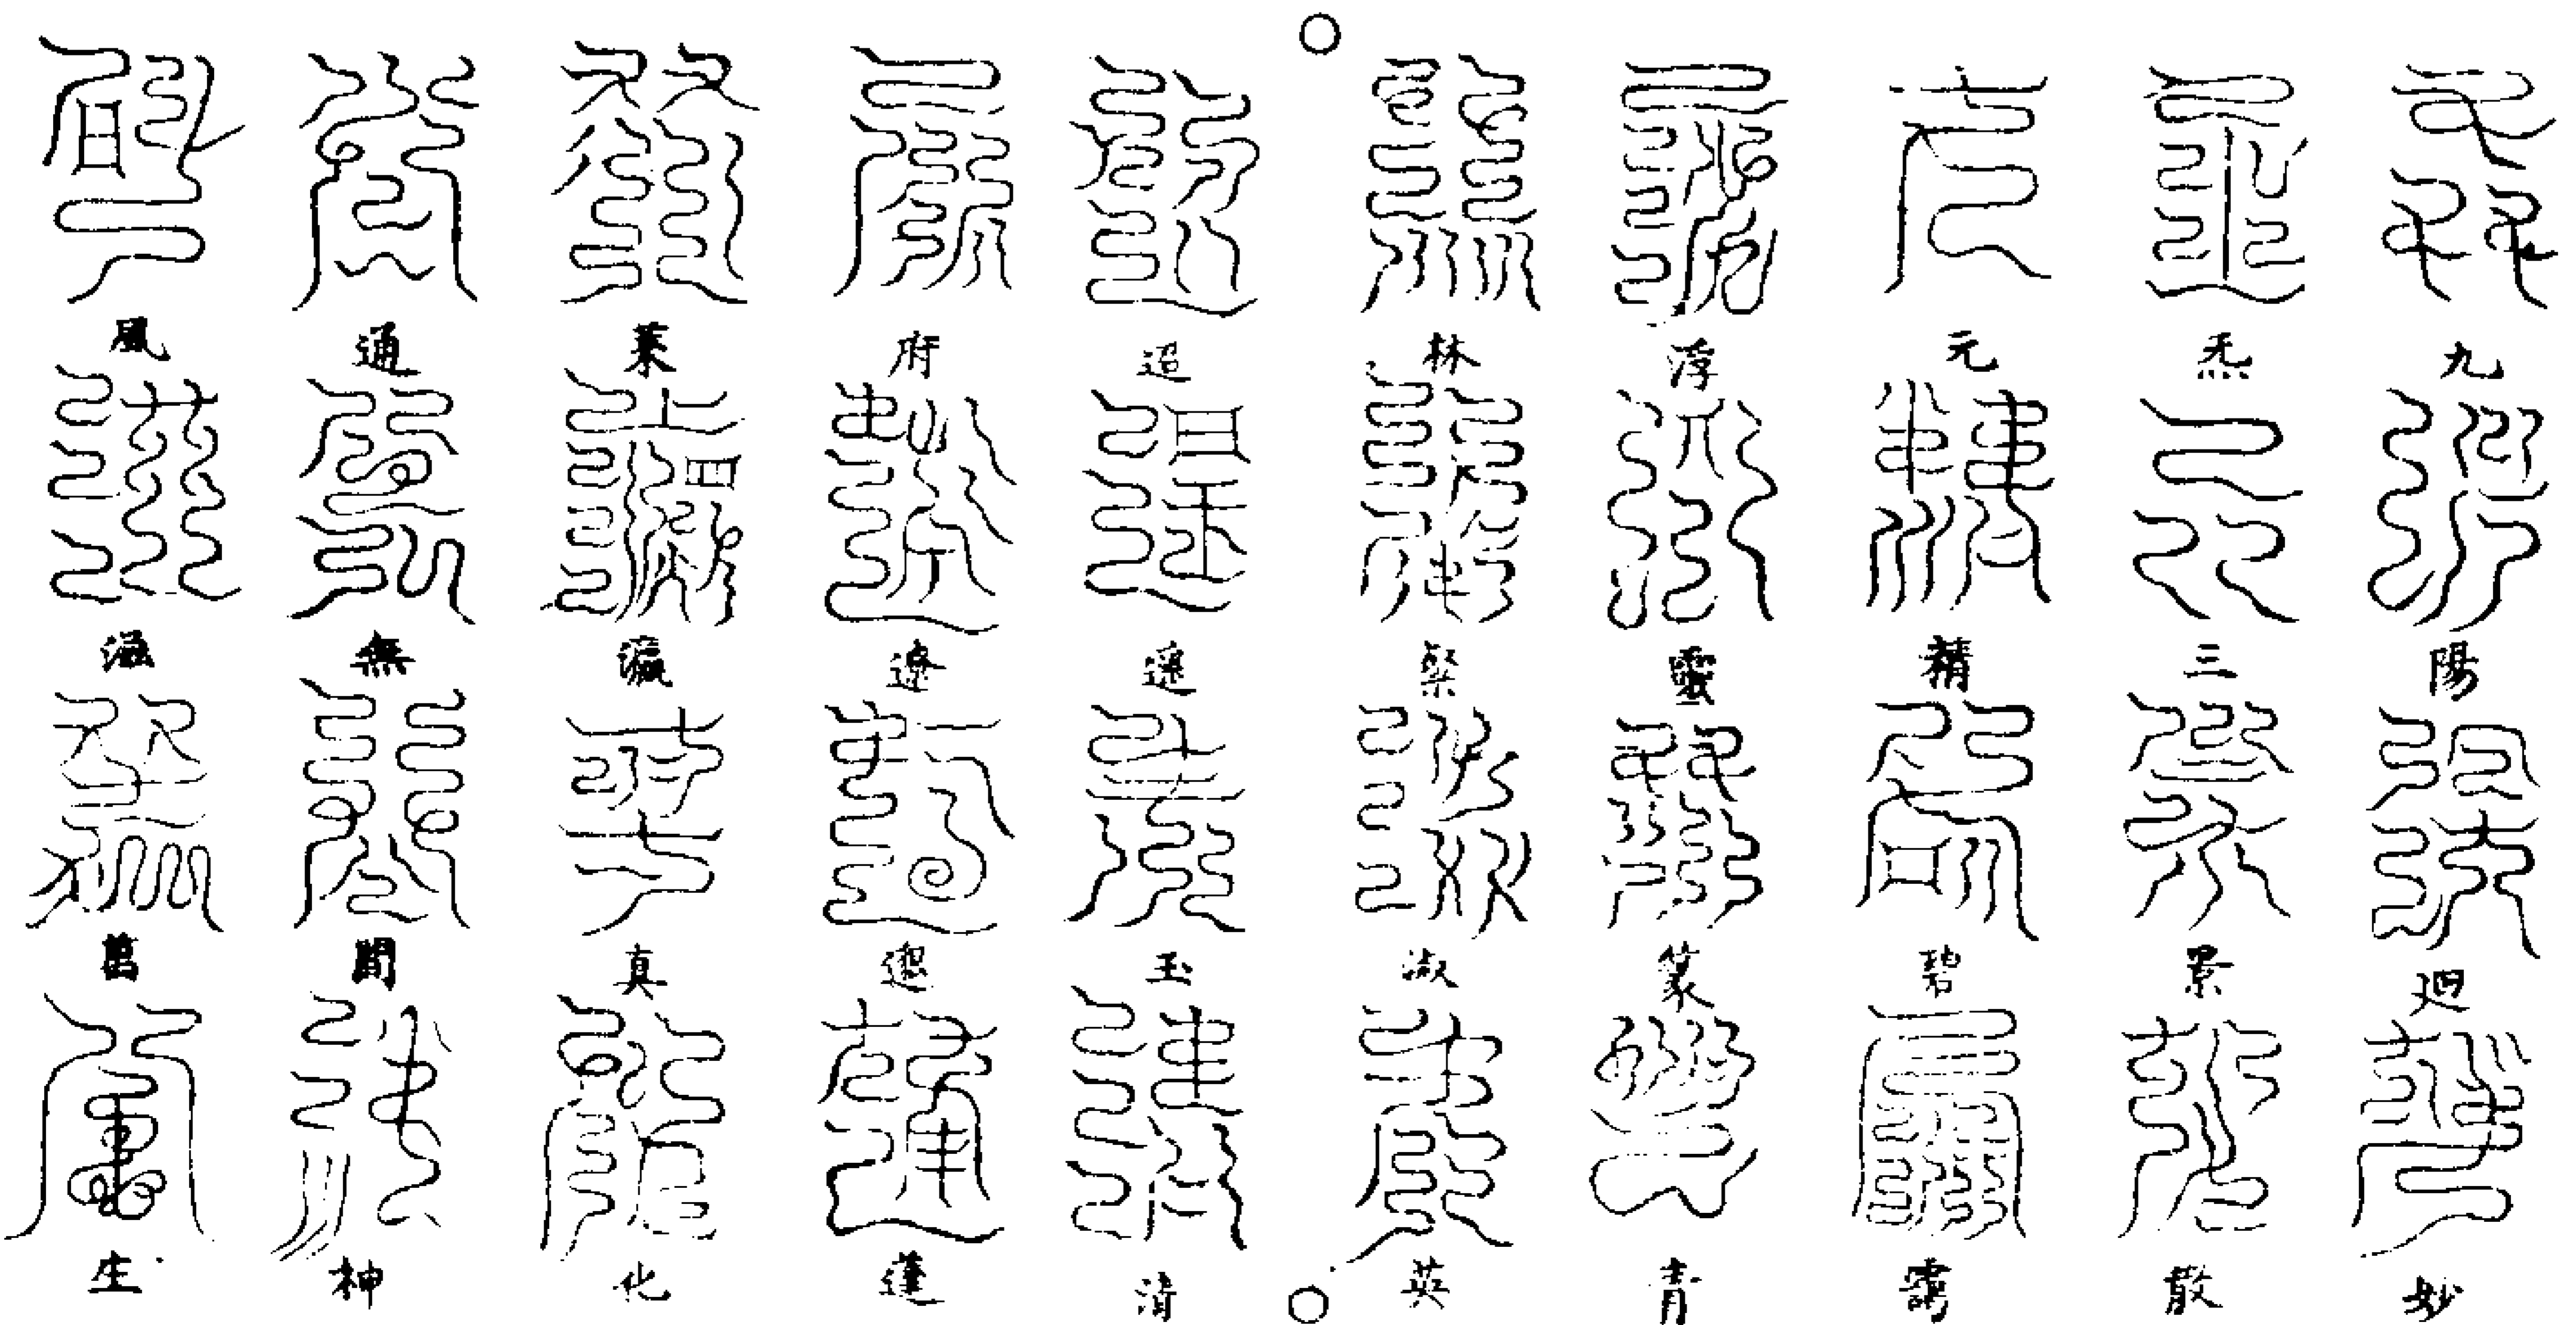 九陽廻妙
炁三景散
元精碧靄
浮靈篆青
林粲淑英
迢遥玉清
府遼邈蓬
萊瀛真化
通無間神
風滋萬生